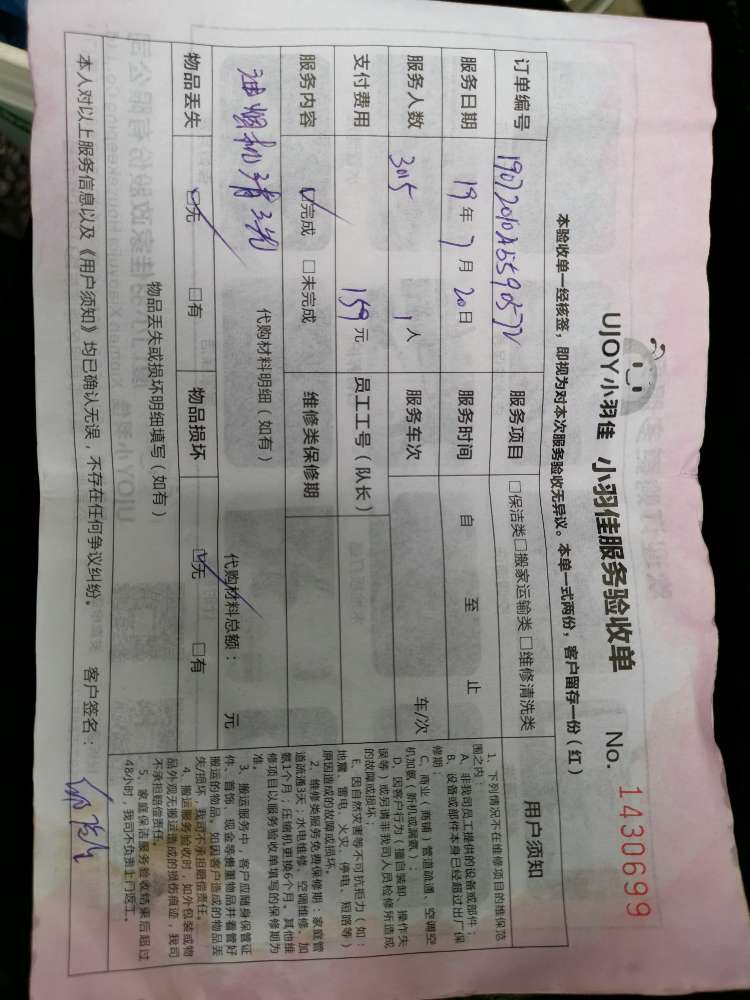 UJOY小羽佳 小羽佳服务验收单 No. 1430699
本验收单一经核签，即视为对本次服务验收无异议。本单一式两份，客户留存一份（红）
订单编号 服务项目 □保洁类□搬家运输类□维修清洗类
服务日期 19年7月20日 服务时间 自 至 止
服务人数 3015 1人 服务车次 车/次
支付费用 159元 员工工号（队长）
服务内容 ☑完成 □未完成 维修类保修期
油烟机清洗 代购材料明细（如有） 代购材料总额： 元
物品丢失 ☑无 □有 物品损坏 ☑无 □有
物品丢失或损坏明细填写（如有）
本人对以上服务信息以及《用户须知》均已确认无误，不存在任何争议纠纷。 客户签名：
用户须知
1、下列情况不在维修项目的维保范
围之内：
A、非我司员工提供的设备或部件；
B、设备或部件本身已经超过出厂保
修期；
C、商业（商铺）管道疏通、空调空
机加氨（新机或漏氨）；
D、因客户行为（擅自装卸、操作失
误等）或另请非我司人员检修所造成
的故障或损坏；
E、因自然灾害等不可抗拒力（如：
地震、雷电、火灾、停电、短路等）
原因造成的故障或损坏。
2、维修类服务免费保修期：家庭管
道疏通3天；水电维修、空调维修、加
氨1个月；压缩机更换6个月。其他维
修项目以服务验收单填写的保修期为
准。
3、搬运服务中，客户应随身保管证
件、首饰、现金等贵重物品并看管好
搬运的物品。如因客户造成的物品丢
失/损坏，我司不承担赔偿责任。
4、搬运服务验收时，如外包装或物
品外观无搬运造成的损伤痕迹，我司
不承担赔偿责任。
5、家庭保洁服务验收结束后超过
48小时，我司不负责上门返工。